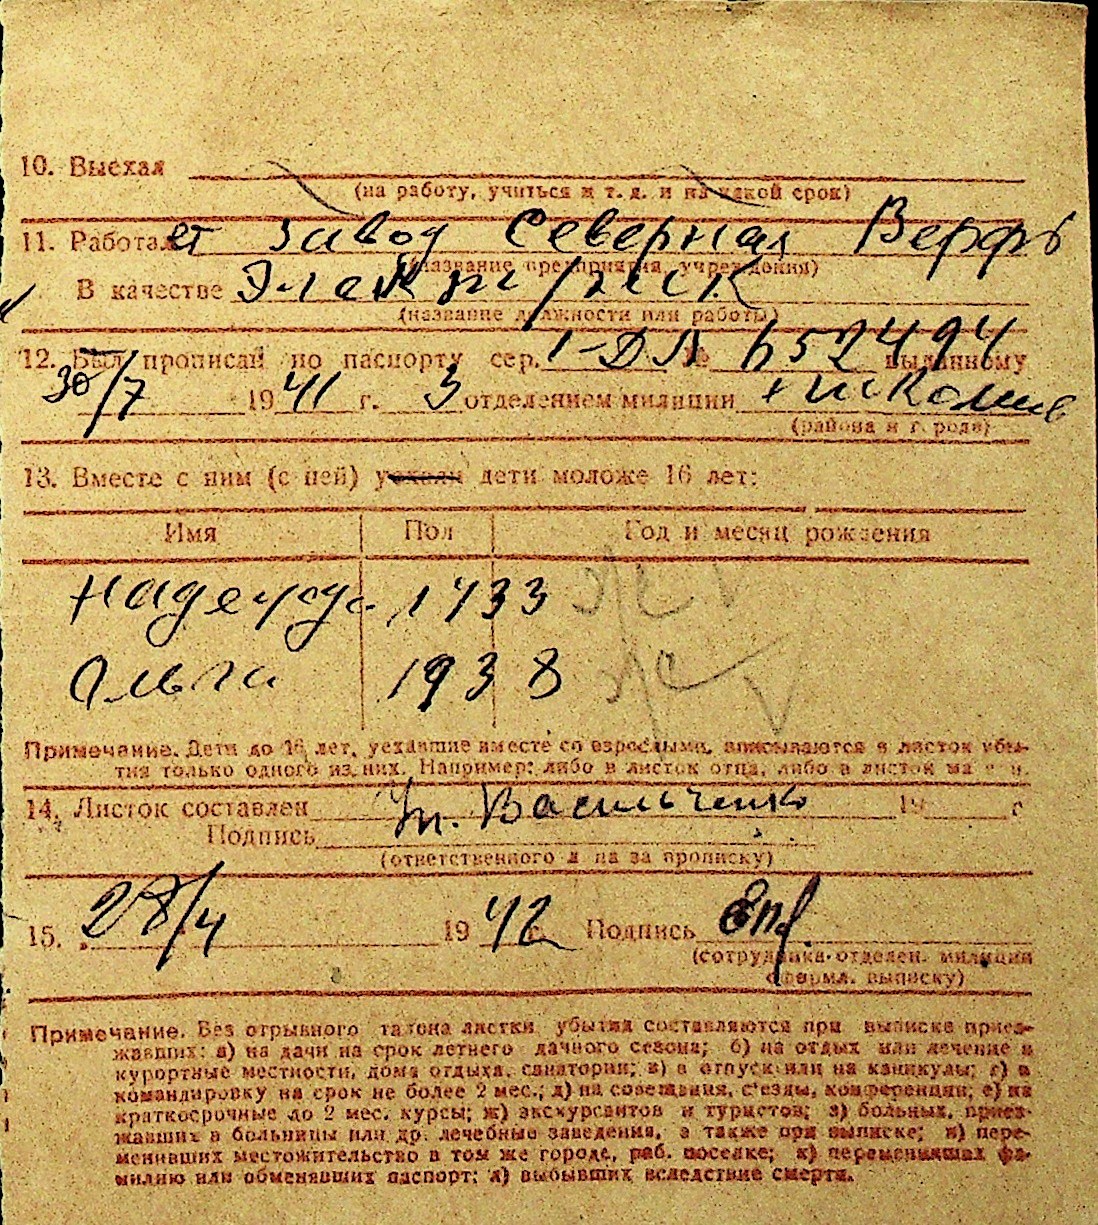 10. Выехал
(на работу, учиться и т. д. и на какой срок)
11. Работает завод Северная Верфь
(название предприятия, учреждения)
В качестве Электрик
(название должности или работы)
12. Был прописан по паспорту сер. 1-ДЛ № 652494 выданному
30/7 1941 г. 3 отделением милиции г Николаев
(района и города)
13. Вместе с ним (с ней) уехали дети моложе 16 лет:
Имя Пол Год и месяц рождения
Надежда 1933 ж
Ольга 1938 ж
Примечание. Дети до 16 лет, уехавшие вместе со взрослыми, вписываются в листок убы-
тия только одного из них. Например: либо в листок отца, либо в листок матери.
14. Листок составлен Васильченко 19 г
Подпись
(ответственного лица за прописку)
15. 28/4 1942 г. Подпись
(сотрудника отделен. милиции
оформл. выписку)
Примечание. Без отрывного талона листки убытия составляются при выписке приез-
жавших: а) на дачи на срок летнего дачного сезона; б) на отдых или лечение в
курортные местности, дома отдыха, санатории; в) в отпуск или на каникулы; г) в
командировку на срок не более 2 мес.; д) на совещания, съезды, конференции; е) на
краткосрочные до 2 мес. курсы; ж) экскурсантов и туристов; з) больных, приез-
жавших в больницы или др. лечебные заведения, а также при выписке; и) пере-
менивших местожительство в том же городе, раб. поселке; к) переменивших фа-
милию или обменявших паспорт; л) выбывших вследствие смерти.